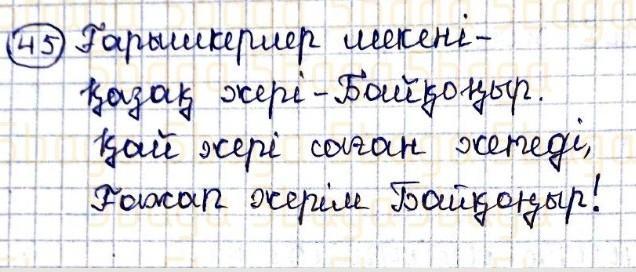 45 Ғарышкерлер мекені-
Қазақ жері-Байқоңыр.
Қай жері саған жетеді,
Ғажап жерім Байқоңыр!